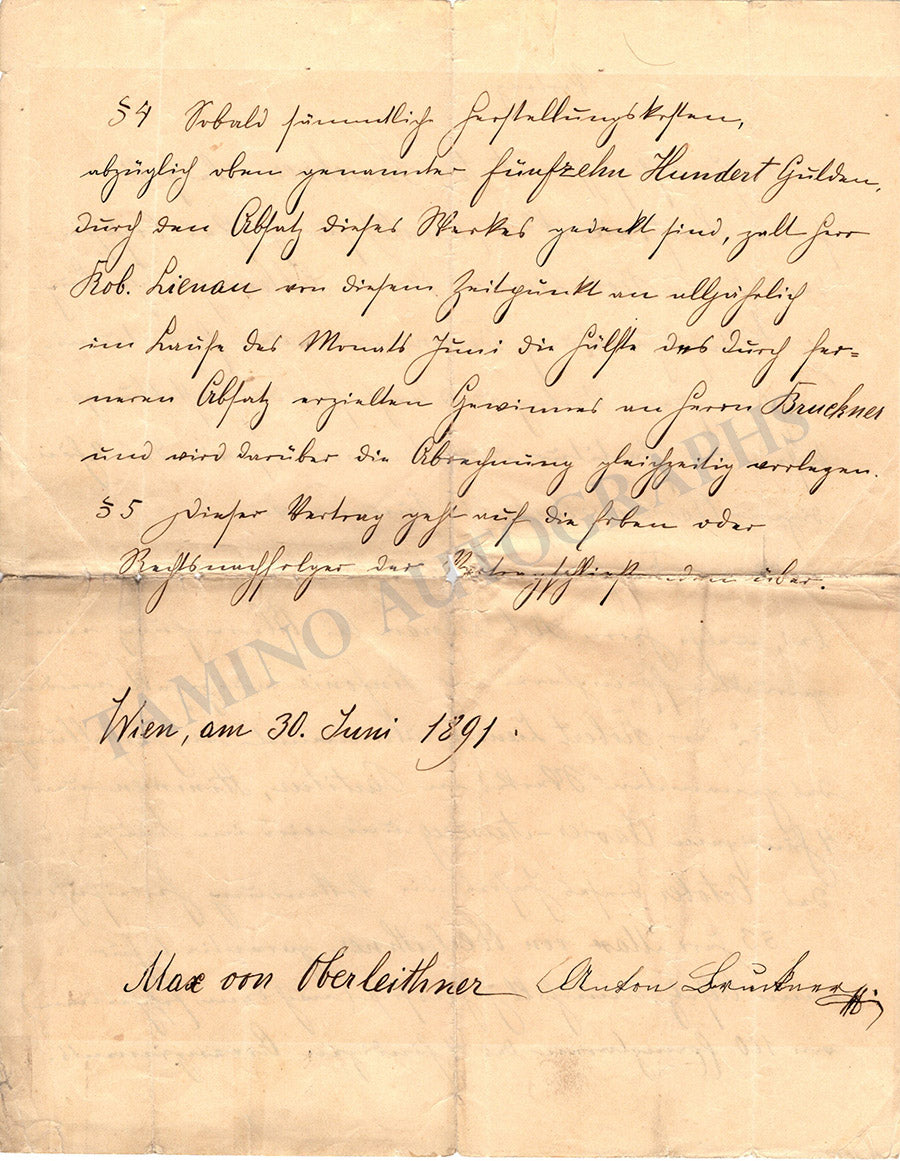 § 4 Sobald sämmtliche Herstellungskosten,
abzüglich oben genannter fünfzehn Hundert Gulden,
durch den Absatz dieses Werkes gedeckt sind, zalt Herr
Rob. Lienau von diesem Zeitpunkt an alljährlich
im Laufe des Monats Juni die Hälfte des durch fer=
neren Absatz erzielten Gewinnes an Herrn Bruckner
und wird darüber die Abrechnung gleichzeitig vorlegen.
§ 5 Dieser Vertrag geht auf die Erben oder
Rechtsnachfolger der Vertragschließenden über.
TAMINO AUTOGRAPHS
Wien, am 30. Juni 1891.
Max von Oberleithner Anton Bruckner